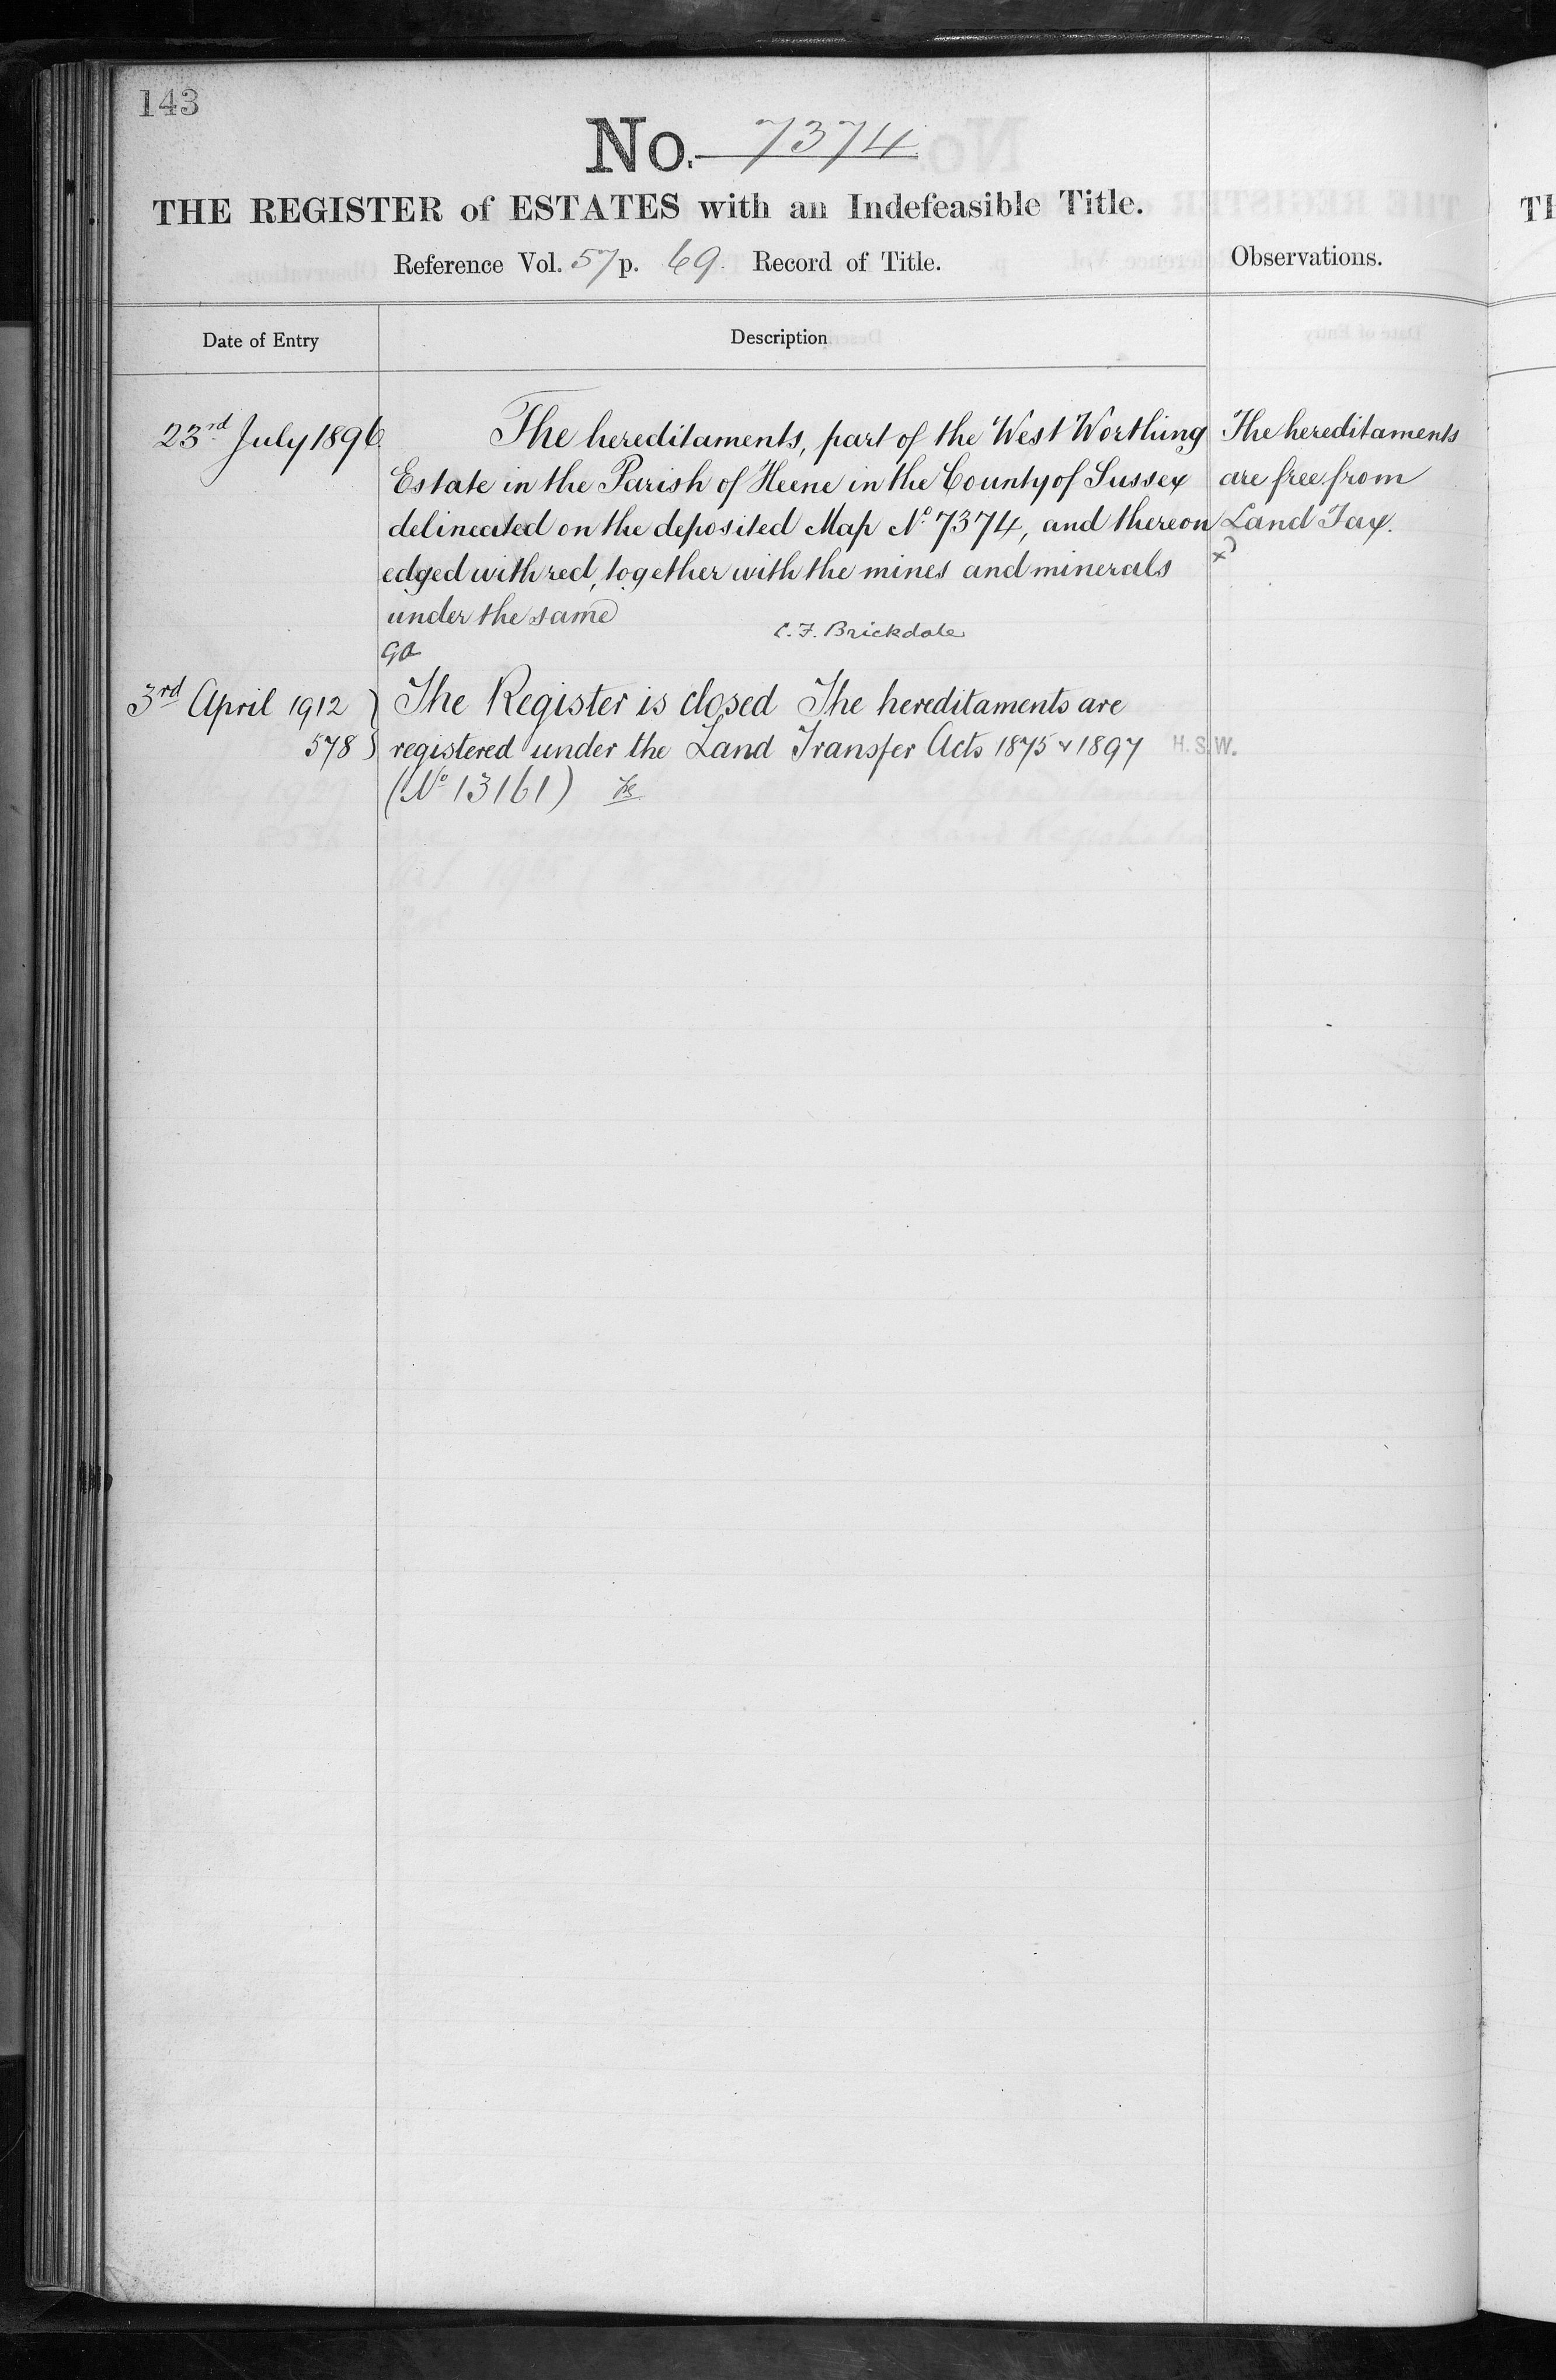 143
No. 7374
THE REGISTER of ESTATES with an Indefeasible Title.
Reference Vol. 57 p. 69. Record of Title.
Observations.
Date of Entry
Description
23rd July 1896
The hereditaments, part of the West Worthing
Estate in the Parish of Heene in the County of Sussex
delineated on the deposited Map No. 7374, and thereon
edged with red, together with the mines and minerals
under the same
C. F. Brickdale
The hereditaments
are free from
Land Tax.
3rd April 1912
578
The Register is closed The hereditaments are
registered under the Land Transfer Acts 1875 & 1897 H.S.W.
(No 13161)